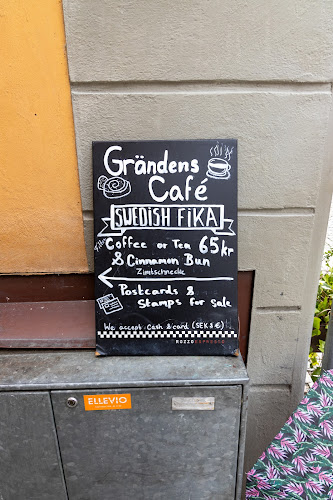 Grändens
Café
SWEDISH FIKA
Coffee or Tea 65kr
& Cinnamon Bun
Zimtschnecke
Postcards &
Stamps for sale
We accept cash & card (SEK & €)
ROZZOESPRESSO
ELLEVIO